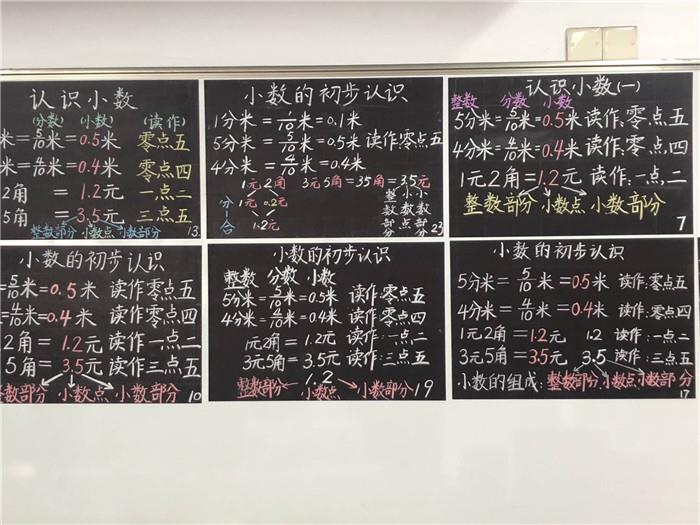 认识小数
(分数) (小数) (读作)
米=5/10米=0.5米 零点五
米=4/10米=0.4米 零点四
2角 = 1.2元 一点二
5角 = 3.5元 三点五
整数部分 小数点 小数部分 13
小数的初步认识
1分米=1/10米=0.1米
5分米=5/10米=0.5米 读作:零点五
4分米=4/10米=0.4米
1元2角 3元5角=35角=3.5元
1元 0.2元
分一合
1.2元
整数部分
小数点
小数部分
23
认识小数(一)
整数 分数 小数
5分米=5/10米=0.5米 读作:零点五
4分米=4/10米=0.4米 读作:零点四
1元2角=1.2元 读作:一点二
整数部分 小数点 小数部分
7
小数的初步认识
5/10米=0.5米 读作零点五
=4/10米=0.4米 读作零点四
2角=1.2元 读作一点二
5角=3.5元 读作三点五
整数部分 小数点 小数部分
10
小数的初步认识
整数 分数 小数
5分米=5/10米=0.5米 读作:零点五
4分米=4/10米=0.4米 读作:零点四
1元2角=1.2元 读作:一点二
3元5角=3.5元 读作:三点五
1.2
整数部分 小数点 小数部分 19
小数的初步认识
5分米=5/10米=0.5米 读作:零点五
4分米=4/10米=0.4米 读作:零点四
1元2角=1.2元 1.2 读作:一点二
3元5角=3.5元 3.5 读作:三点五
小数的组成:整数部分小数点小数部分
17